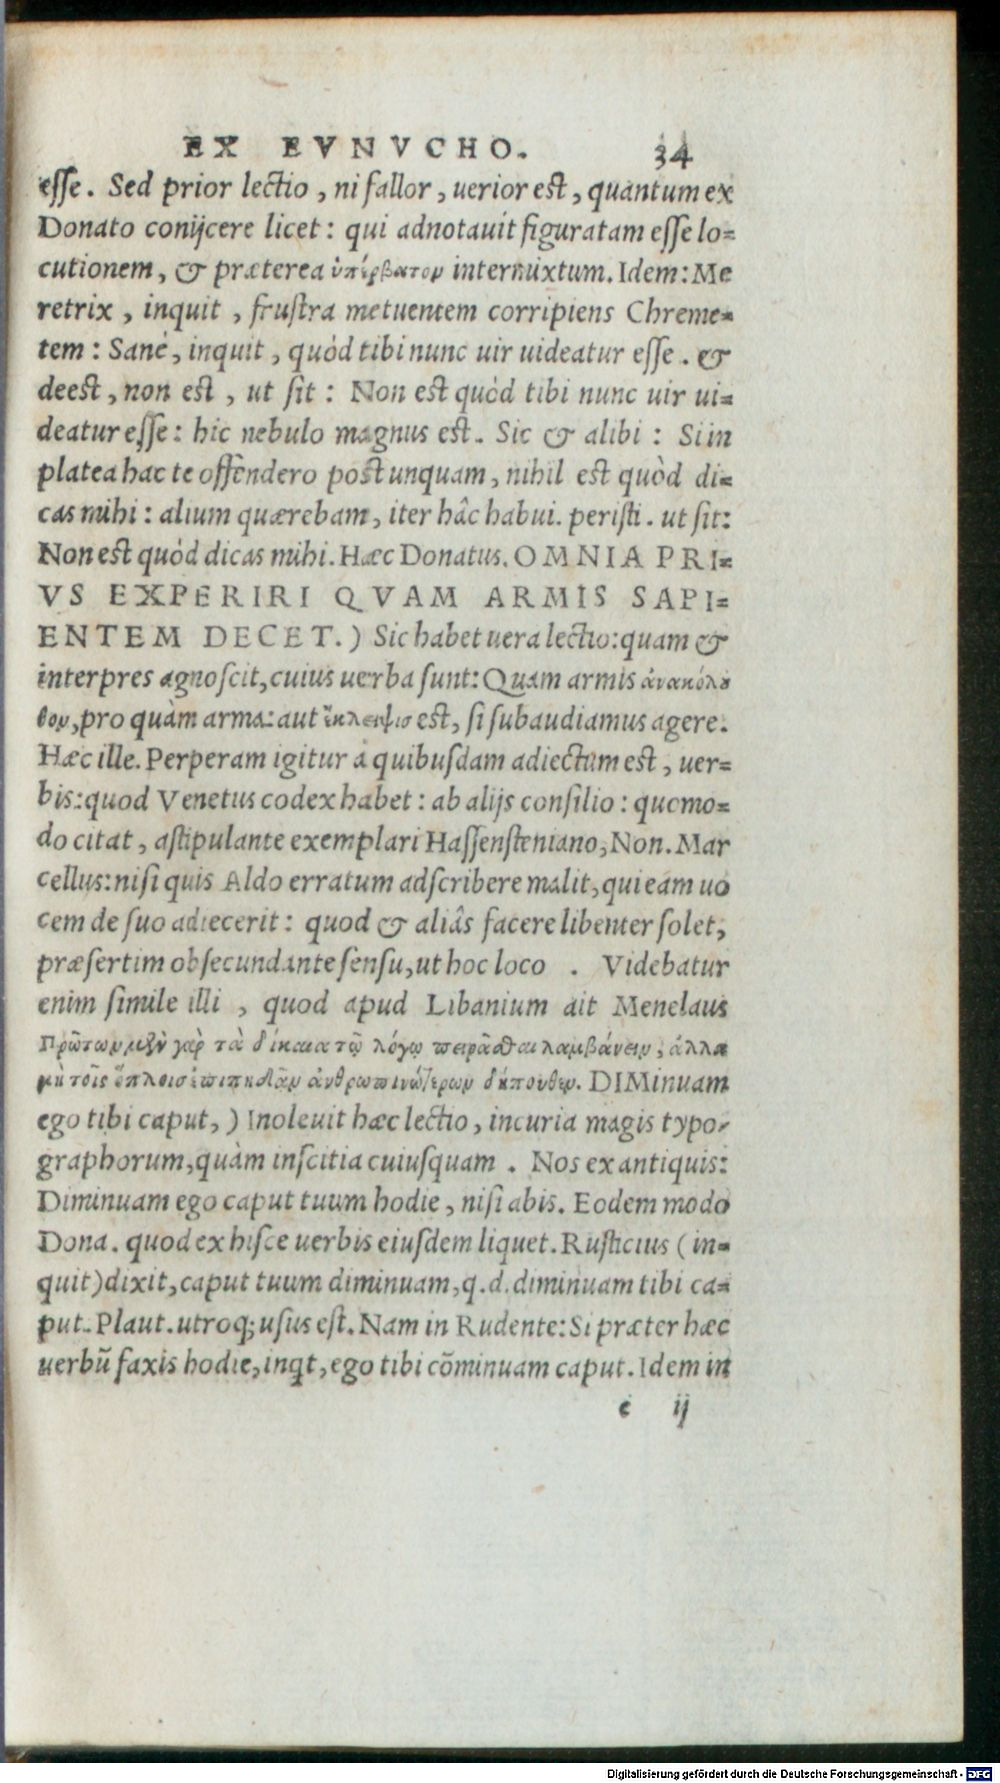 EX EVNVCHO. 34
esse. Sed prior lectio, ni fallor, uerior est, quantum ex
Donato conijcere licet: qui adnotauit figuratam esse lo=
cutionem, & præterea ὑπέρβατον intermixtum. Idem: Me
retrix, inquit, frustra metuentem corripiens Chreme=
tem: Sanè, inquit, quòd tibi nunc uir uideatur esse. &
deest, non est, ut sit: Non est quòd tibi nunc uir ui=
deatur esse: hic nebulo magnus est. Sic & alibi: Si in
platea hac te offendero post unquam, nihil est quòd di=
cas mihi: alium quærebam, iter hâc habui. peristi. ut sit:
Non est quòd dicas mihi. Hæc Donatus. OMNIA PRI=
VS EXPERIRI QVAM ARMIS SAPI=
ENTEM DECET.) Sic habet uera lectio: quam &
interpres agnoscit, cuius uerba sunt: Quam armis ἀνακόλȣ
θον, pro quàm arma: aut ἔκλειψις est, si subaudiamus agere.
Hæc ille. Perperam igitur à quibusdam adiectum est, uer=
bis: quod Venetus codex habet: ab alijs consilio: quomo=
do citat, astipulante exemplari Hassensteniano, Non. Mar
cellus: nisi quis Aldo erratum adscribere malit, qui eam uo
cem de suo adiecerit: quod & aliâs facere libenter solet,
præsertim obsecundante sensu, ut hoc loco. Videbatur
enim simile illi, quod apud Libanium ait Menelaus
Πρῶτον μὲν γὰρ τὰ δίκαια τῷ λόγῳ πειρᾶσθαι λαμβάνειν, ἀλλὰ
μὴ τοῖς ὅπλοις ἐπιπηδᾶν ἀνθρωπινώτερον δήπουθεν. DIMinuam
ego tibi caput,) Inoleuit hæc lectio, incuria magis typo-
graphorum, quàm inscitia cuiusquam. Nos ex antiquis:
Diminuam ego caput tuum hodie, nisi abis. Eodem modo
Dona. quod ex hisce uerbis eiusdem liquet. Rusticius (in=
quit) dixit, caput tuum diminuam, q.d. diminuam tibi ca=
put. Plaut. utroq; usus est. Nam in Rudente: Si præter hæc
uerbũ faxis hodie, inqt, ego tibi cõminuam caput. Idem in
e ij
Digitalisierung gefördert durch die Deutsche Forschungsgemeinschaft - DFG